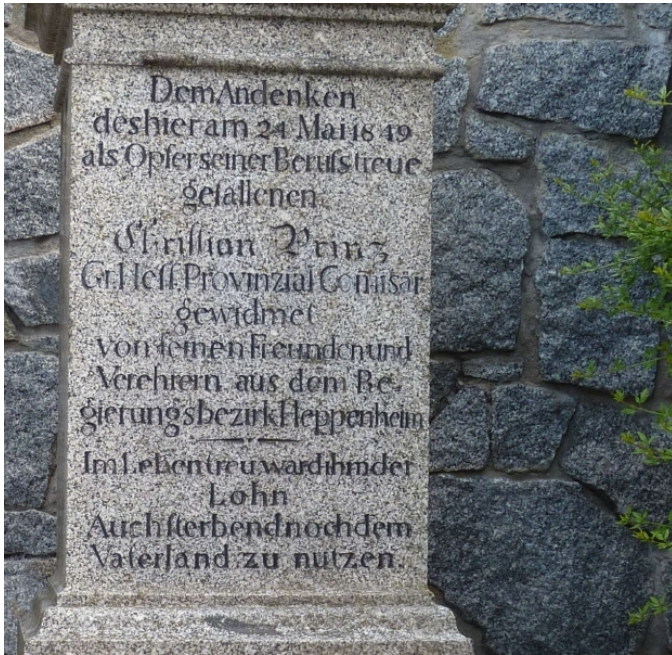 Dem Andenken
des hier am 24 Mai 1849
als Opfer seiner Berufstreue
gefallenen
Christian Prinz
Gr. Hess. Provinzial Comisär
gewidmet
von seinen Freunden und
Verehrern aus dem Re-
gierungsbezirk Heppenheim
Im Leben treu ward ihm der
Lohn
Auch sterbend noch dem
Vaterland zu nutzen.